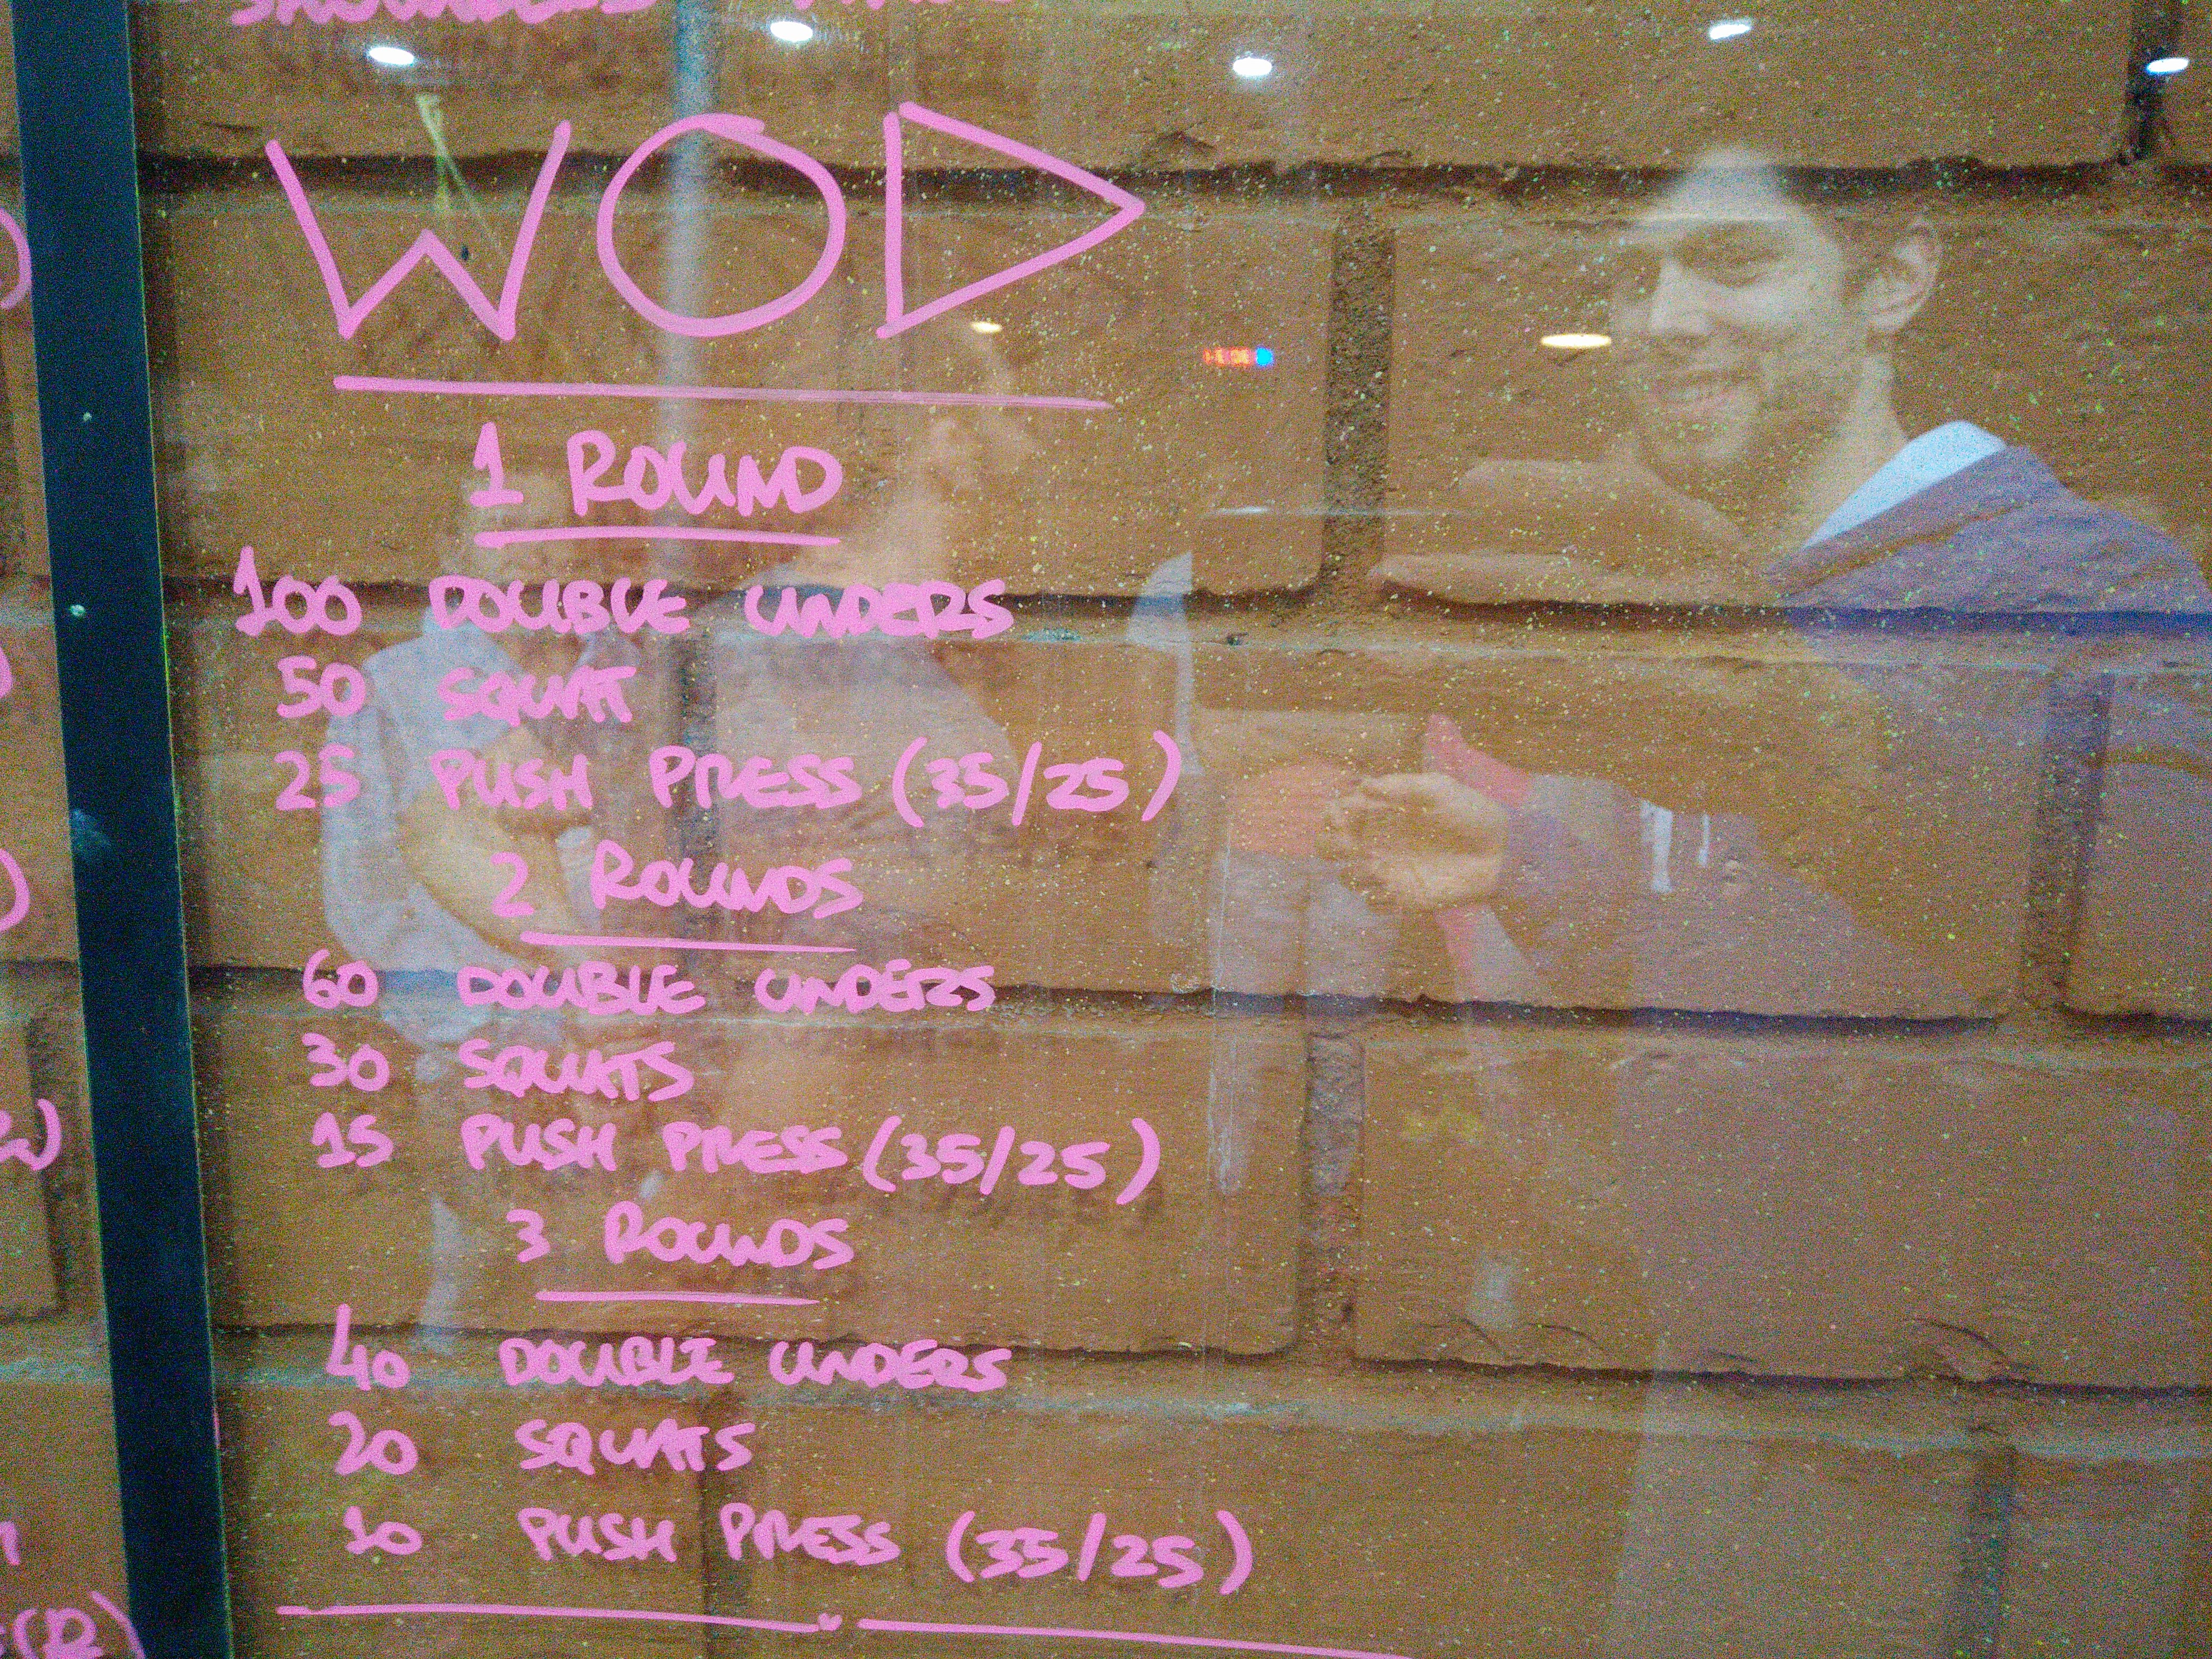 WOD
1 ROUND
100 DOUBLE UNDERS
50 SQUAT
25 PUSH PRESS (35/25)
2 ROUNDS
60 DOUBLE UNDERS
30 SQUATS
15 PUSH PRESS (35/25)
3 ROUNDS
40 DOUBLE UNDERS
20 SQUATS
10 PUSH PRESS (35/25)